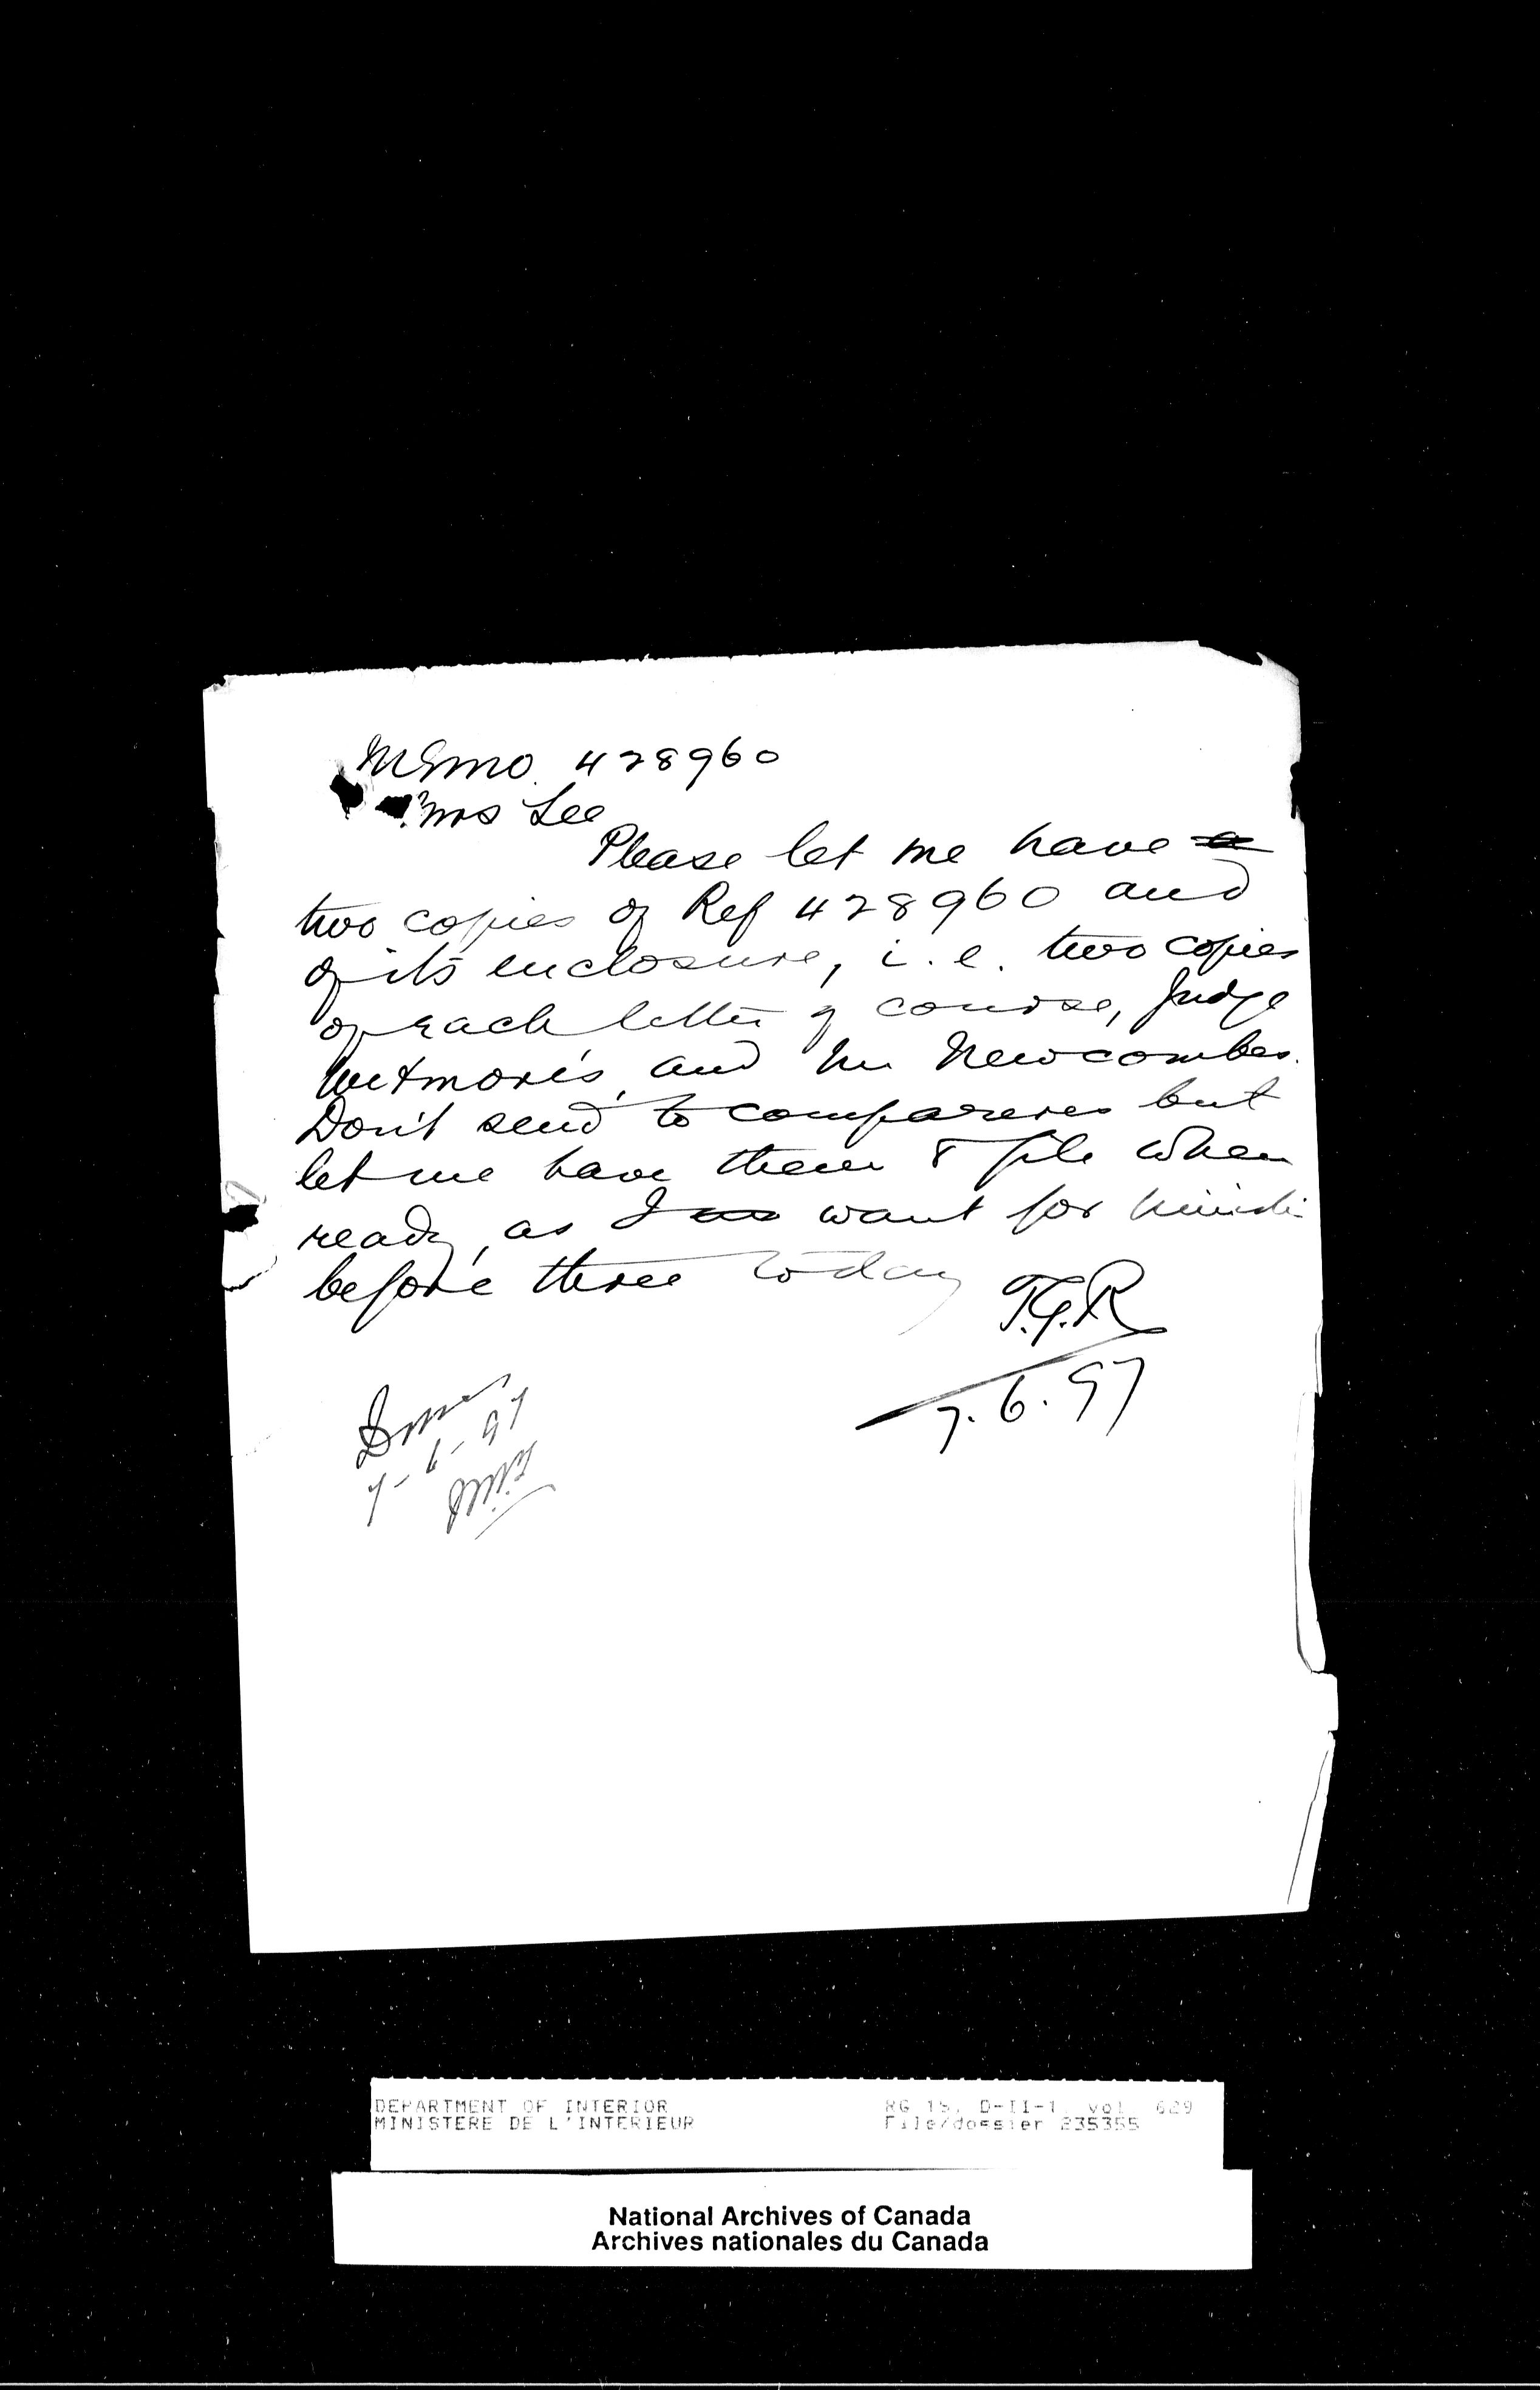 Memo. 428960
Mrs Lee
Please let me have a
two copies of Ref 428960 and
of its enclosure, i.e. two copies
of each letter of course, Judge
Wetmore's, and Mr Newcombes.
Don't send to comparers but
let me have them & file when
ready, as I want for
before three today
T.G.R
7.6.97
Done
7-6-97
DEPARTMENT OF INTERIOR RG 15, D-II-1, vol. 629
MINISTERE DE L'INTERIEUR File/dossier 235355
National Archives of Canada
Archives nationales du Canada